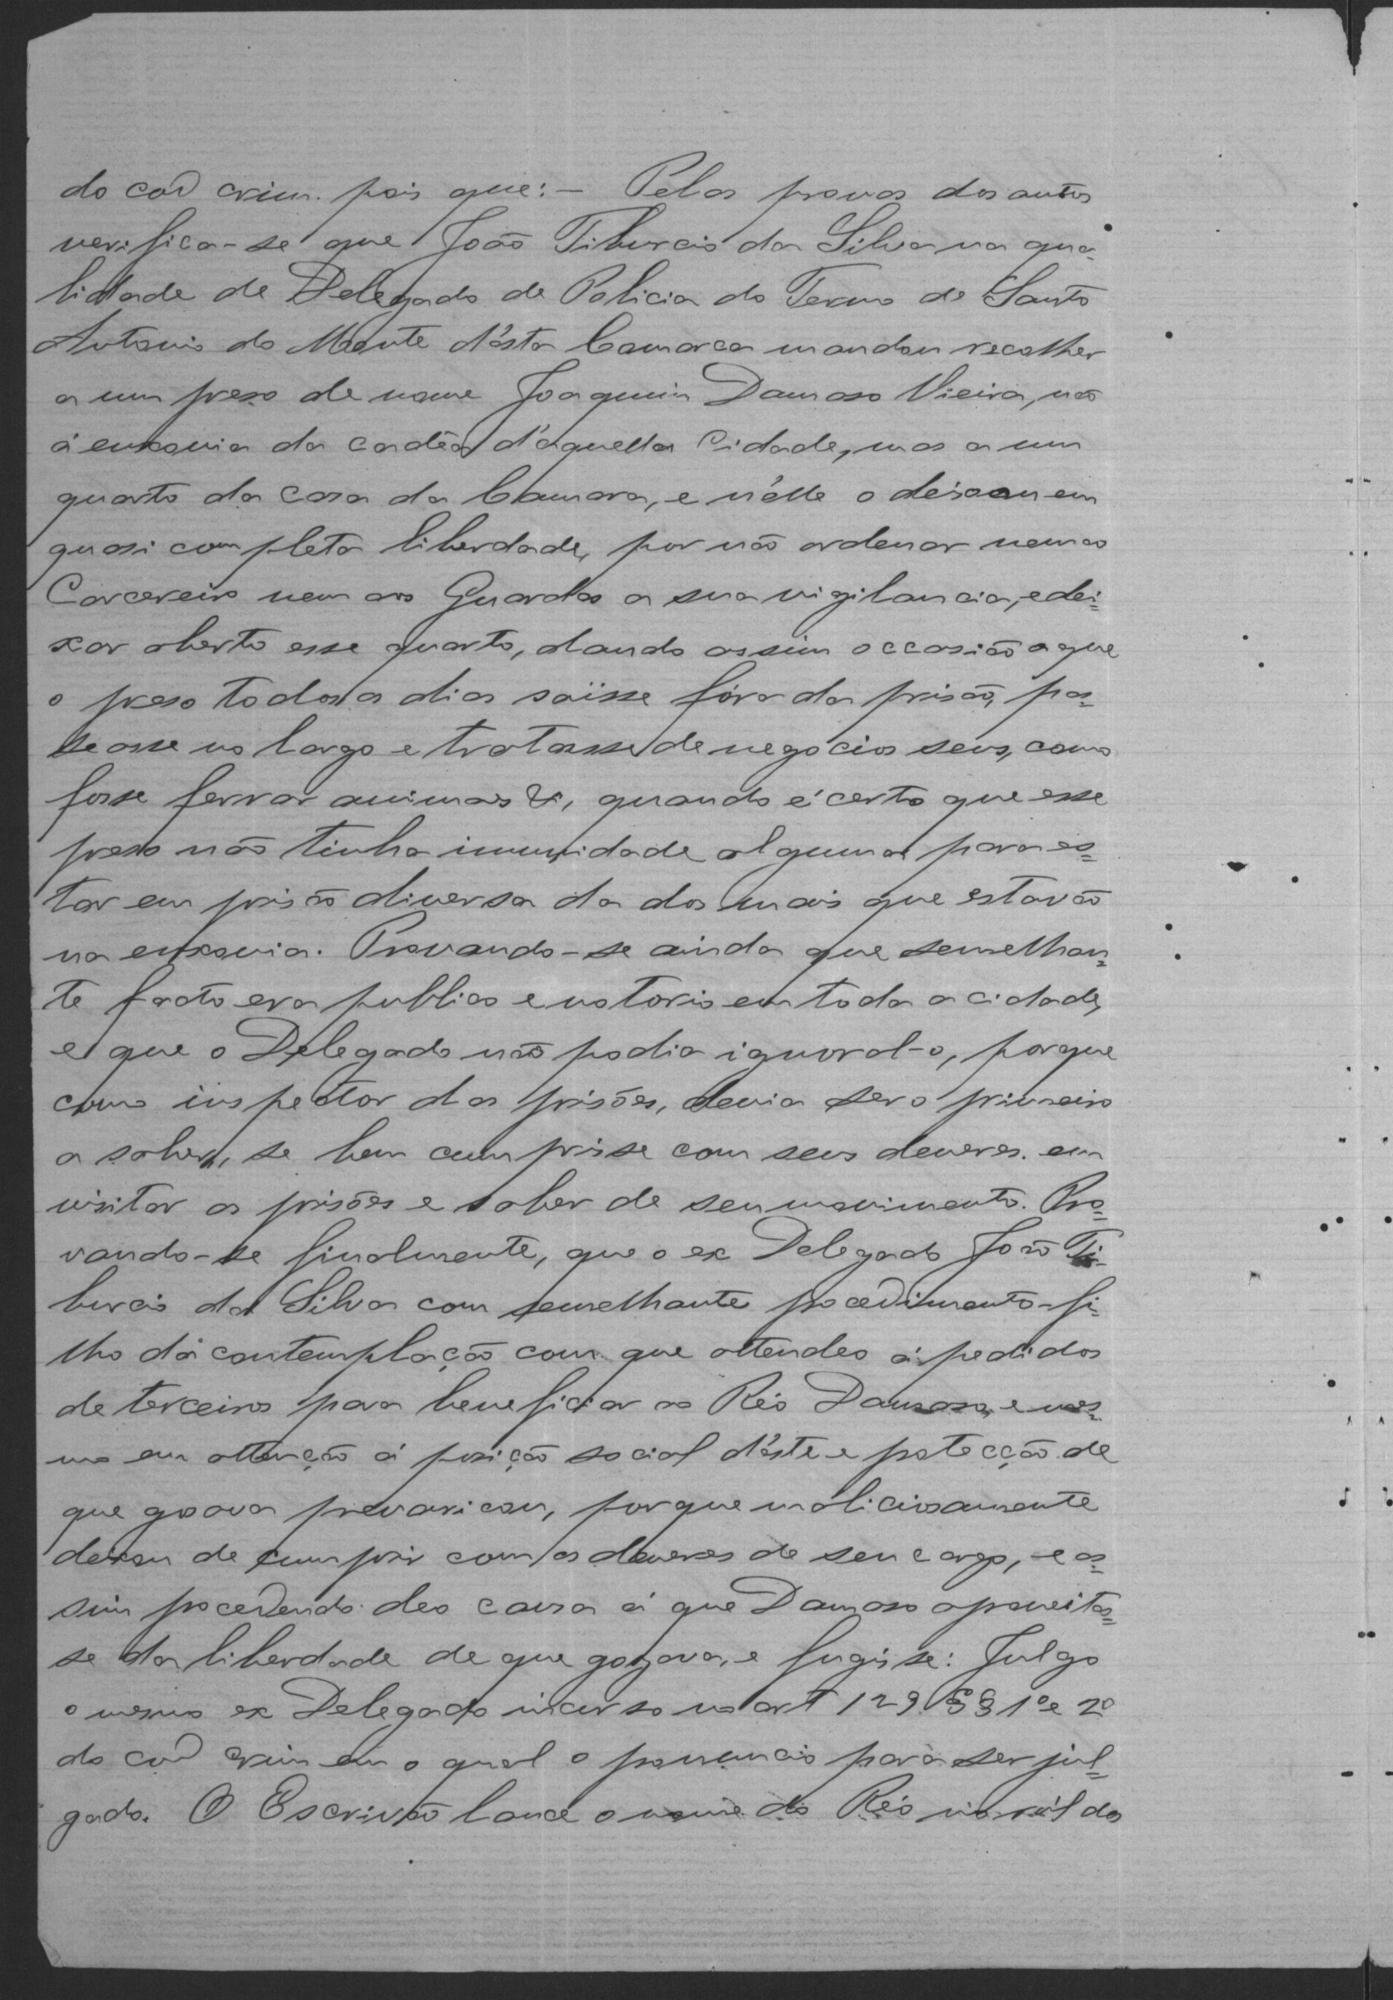 do cod crim. pois que: — Pelas provas dos autos
verifica-se que João Tiburcio da Silva na qua-
lidade de Delegado de Policia do Termo de Santo
Antonio do Monte d'ésta Comarca mandou recolher
a um preso de nome Joaquim Damaso Vieira, não
á enxovia da cadêa d'aquella Cidade, mas a um
quarto da casa da Camara, e n'élle o deixou em
quasi completa liberdade, por não ordenar nem ao
Carcereiro nem aos Guardas a sua vigilancia, e dei=
xar aberto esse quarto, dando assim occasião a que
o preso todos os dias saïsse fóra da prisão, pas=
seasse no largo e tratasse de negocios seus, como
fosse ferrar animaes &, quando é certo que esse
preso não tinha immunidade alguma para es=
tar em prisão diversa da dos mais que estavão
na enxovia. Provando-se ainda que semelhan=
te facto era publico e notorio em toda a cidade,
e que o Delegado não podia ignoral-o, porque
como inspector das prisões, devia ser o primeiro
a saber, se bem cumprisse com seus deveres em
visitar as prisões e saber de seu movimento. Pro=
vando-se finalmente, que o ex Delegado João Ti=
burcio da Silva com semelhante procedimento-fi-
lho dá contemplação com que attendeo á pedidos
de terceiros para beneficiar ao Réo Damaso, e mes=
mo em attenção á posição social d'éste e protecção de
que gosava prevaricou, porque maliciosamente
deixou de cumprir com os deveres de seu cargo, e as=
sim procedendo deo causa á que Damaso aproveitas=
se da liberdade de que gozava, e fugisse: Julgo
o mesmo ex Delegado incurso no art 129 §§ 1º e 2º
do cod crim em o qual o pronuncio para ser jul=
gado. O Escrivão lance o nome do Réo no ról dos